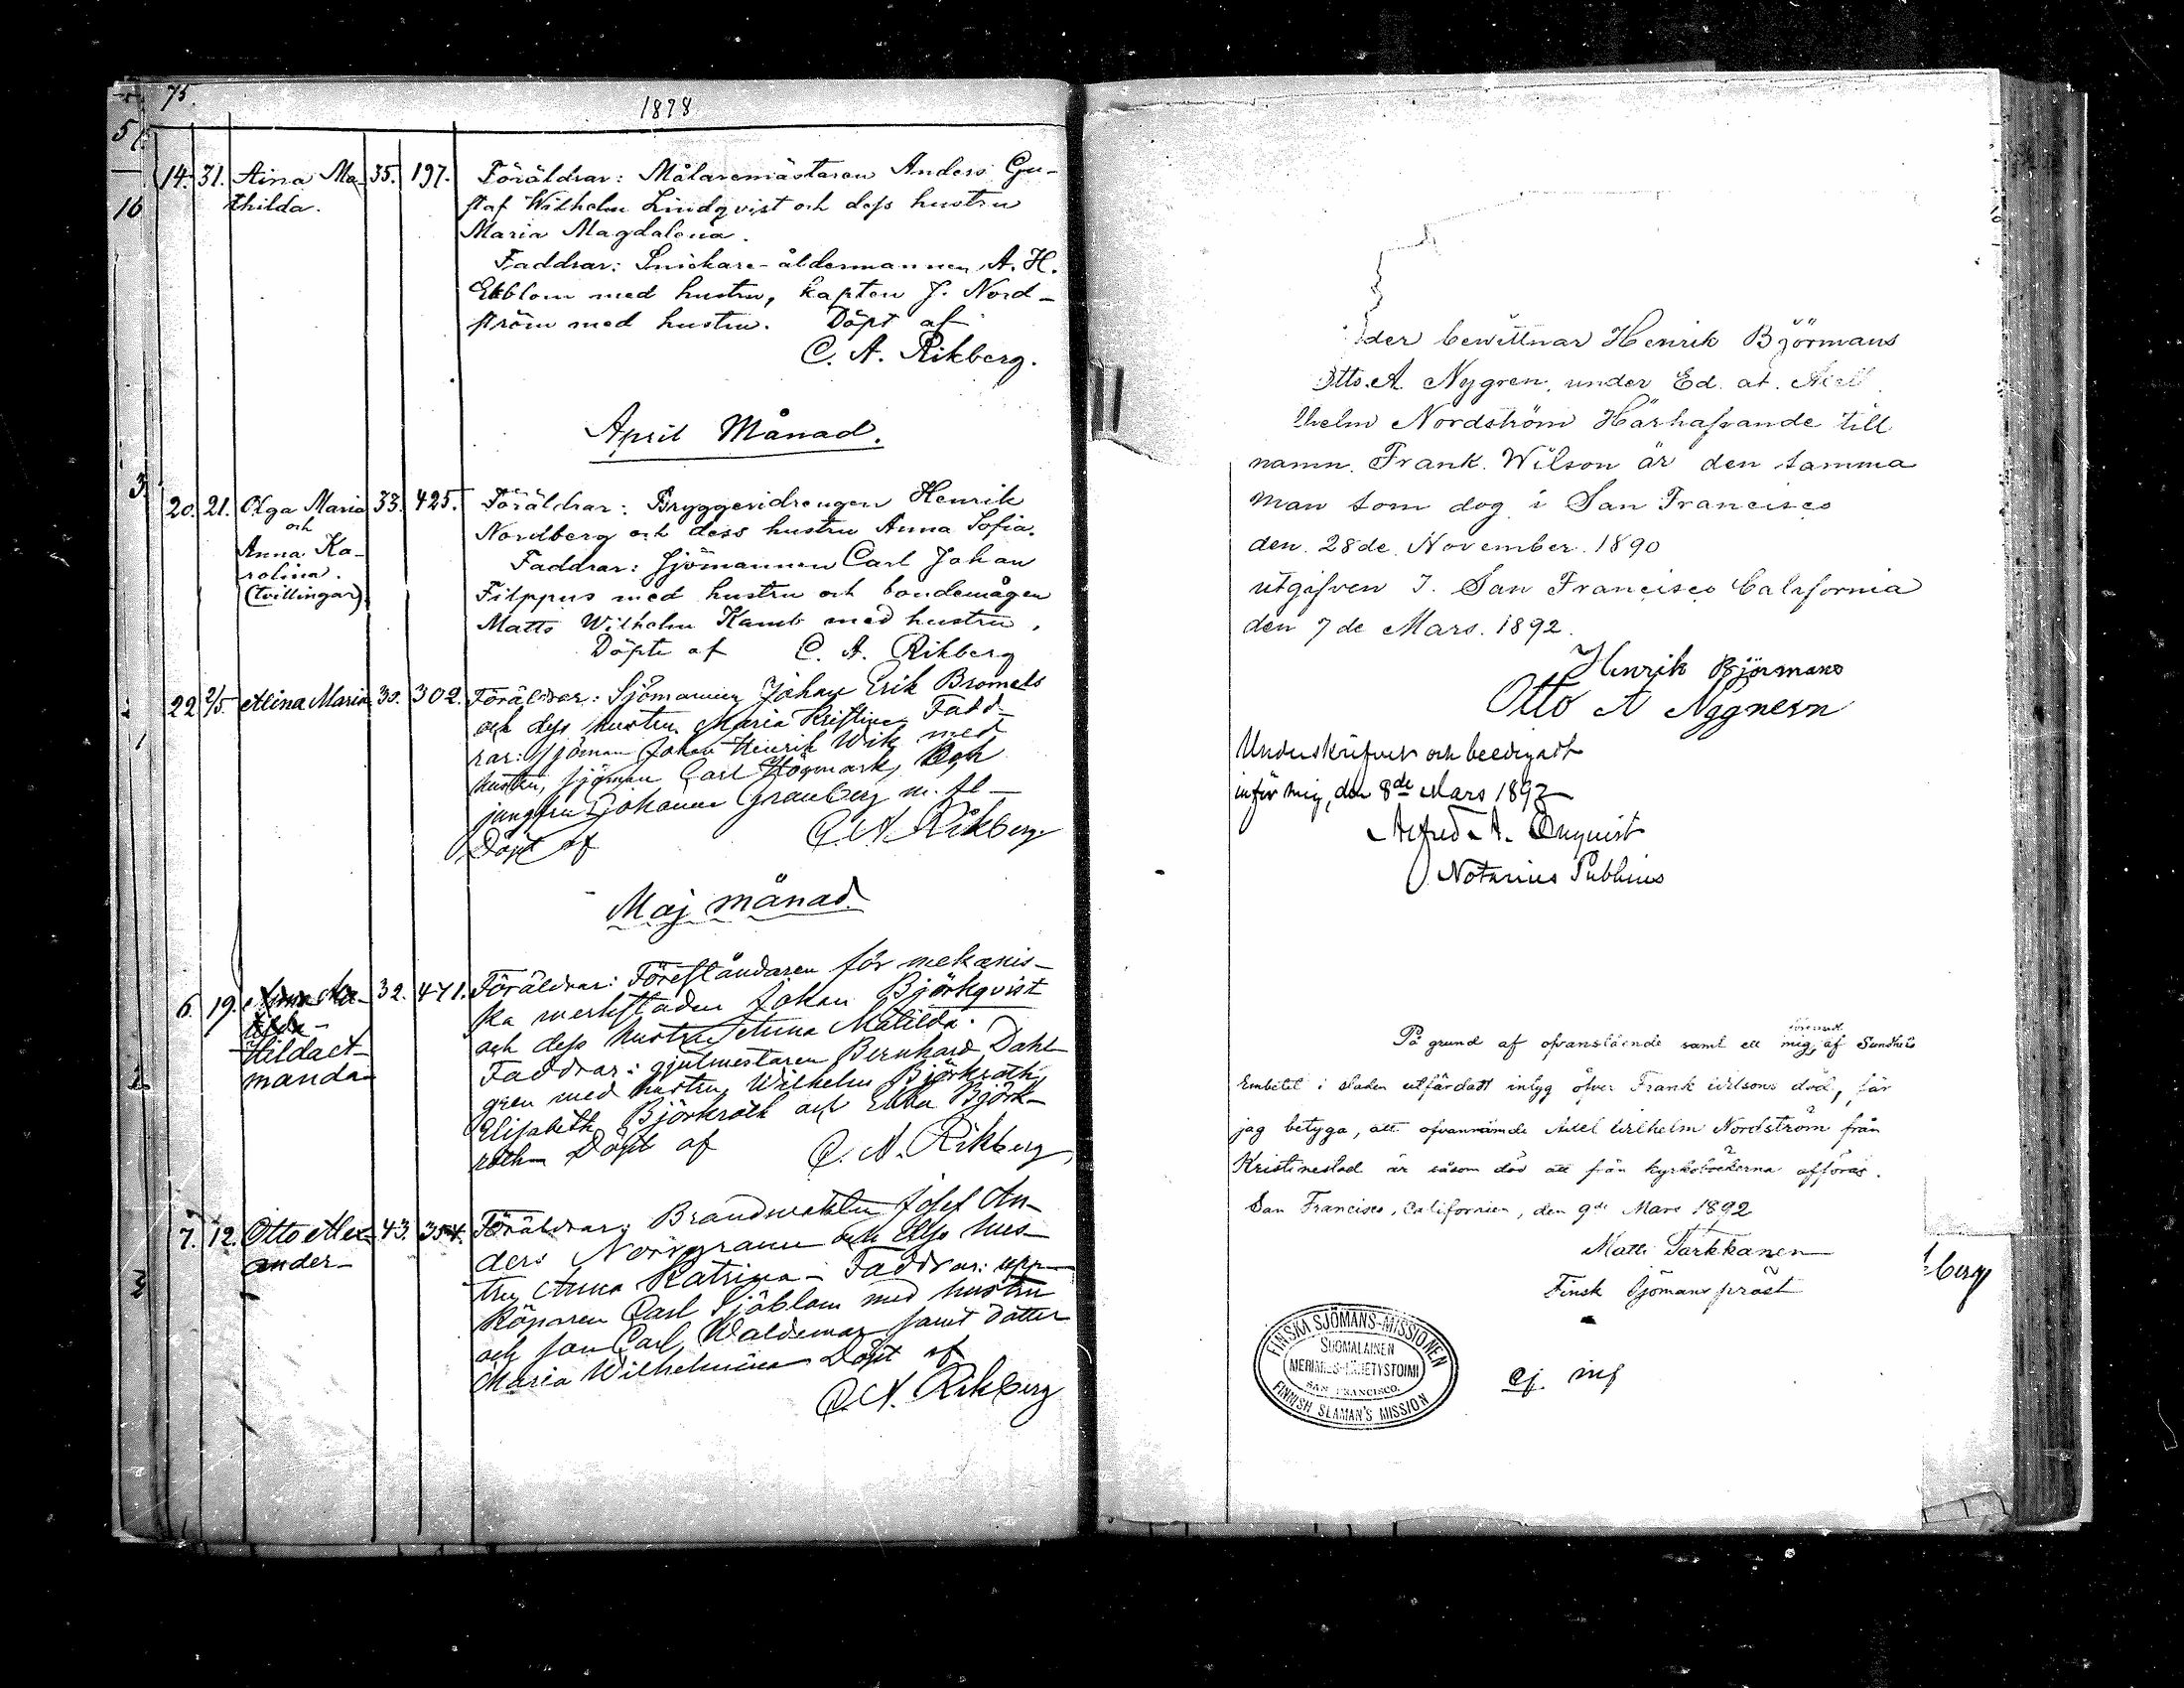 75.
1878
14. 31. Aina Ma- 35. 197. Föräldrar: Målaremästaren Anders Gu-
thilda. staf Wilhelm Lindqvist och dess hustru
Maria Magdalena.
Faddrar: Snickare-åldermannen A. H.
Ekblom med hustru, kapten J. Nord-
ström med hustru. Döpt af
C. A. Rikberg.
April Månad.
20. 21. Olga Maria 33. 425. Föräldrar: Bryggeridrengen Henrik
och Nordberg och dess hustru Anna Sofia.
Anna Ka- Faddrar: Sjömannen Carl Johan
rolina. Filppus med hustru och bondemågen
(tvillingar) Matts Wilhelm Kamb med hustru.
Döpte af C. A. Rikberg
22 2/5. Alina Maria 30. 302. Föräldrar: Sjömannen Johan Erik Bromels
och dess hustru Maria Kristina Fadd-
rar: sjöman Johan Henrik Wik med
hustru, sjöman Carl Högmark, och
jungfru Johanna Granberg m. fl-
Döpt af C. A. Rikberg
Maj månad
6. 19. 32. 471. Föräldrar: Föreståndaren för mekanis-
ka werkstaden Johan Björkqvist
Hilda A- och dess hustru Anna Matilda.
manda Faddrar: gjutmestaren Bernhard Dahl-
gren med hustru, Wilhelm Björkroth,
Elisabeth Björkroth och Emma Björk-
roth Döpt af C. A. Rikberg
7. 12. Otto Alex- 43. 354. Föräldrar: Brandwakten Josef An-
ander- ders Norrgrann och dess hus-
tru Anna Katrina - Faddrar: upp-
köparen Carl Sjöblom med hustru
och son Carl Waldemar samt dotter
Maria Wilhelmina Döpt af
C. A. Rikberg
der bewittnar Henrik Björmans
Otto. A. Nygren. under Ed. at. Axell
lhelm Nordström Härhafvande till
namn. Frank. Wilson är den samma
man som dog i San Francisco
den. 28de. November. 1890
utgifven I. San Francisco California
den 7 de Mars. 1892.
Henrik Björmans
Otto A Nygnern
Underskrifvet och beedigadt
inför mig, den 8de Mars 1892
Alfred A. Enquist
Notarius Publicus
På grund af ofvanstående samt ett mig, af Sundhets
Embetet i staden utfärdatt intyg öfver Frank Wilsons död, får
jag betyga, att ofvannämde Axel Wilhelm Nordström från
Kristinestad är såsom död att från kyrkoböckerna afföras.
San Francisco, Californien, den 9de Mars 1892
Matti Tarkkanen
Finsk Sjömanspräst
berg
FINSKA SJÖMANS-MISSIONEN
SUOMALAINEN
MERIMIES-LÄHETYSTOIMI
SAN FRANCISCO.
FINNISH SEAMAN'S MISSION